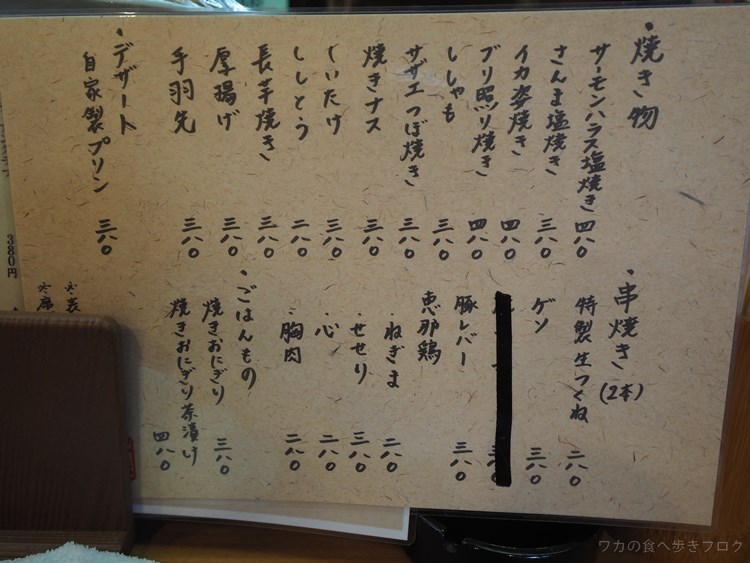 ・焼き物
サーモンハラス塩焼き 四八〇
さんま塩焼き 三八〇
イカ姿焼き 四八〇
ブリ照り焼き 四八〇
ししゃも 三八〇
サザエつぼ焼き 三八〇
焼きナス 三八〇
しいたけ 三八〇
ししとう 二八〇
長芋焼き 三八〇
厚揚げ 三八〇
手羽先 三八〇
・デザート
自家製プリン 三八〇
・串焼き(2本)
特製生つくね 二八〇
ゲソ 三八〇
豚レバー 三八〇
恵那鶏
・ねぎま 二八〇
・せせり 三八〇
・心 二八〇
・胸肉 二八〇
・ごはんもの
焼きおにぎり 三八〇
焼きおにぎり茶漬け 四八〇
※表
※席
380円
ワカの食べ歩きブログ